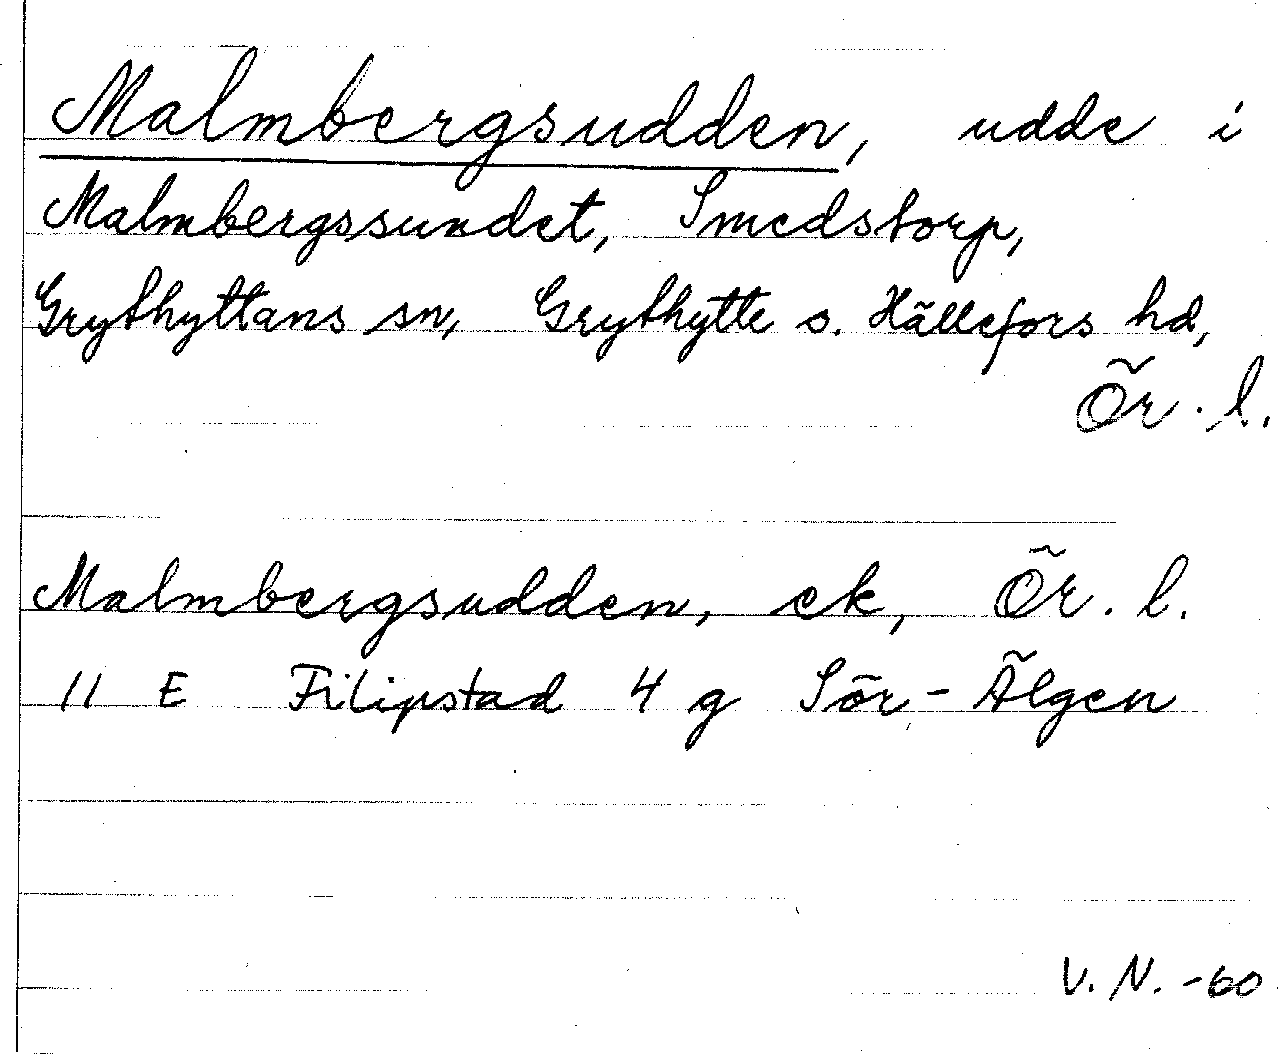 Malmbergsudden, udde i
Malmbergssundet, Smedstorp,
Grythyttans sn, Grythytte o. Hällefors hd,
Ör. l.
Malmbergsudden, ek, Ör. l.
11 E Filipstad 4 g Sör-Älgen
V. N. -60